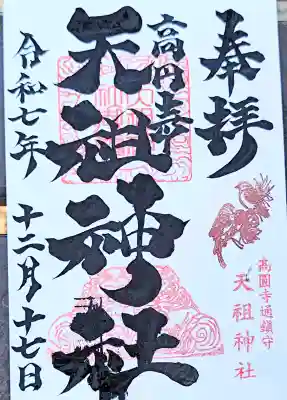 奉拝
高円寺
天祖神社
令和七年
十二月十七日
高圓寺通鎮守
天祖神社